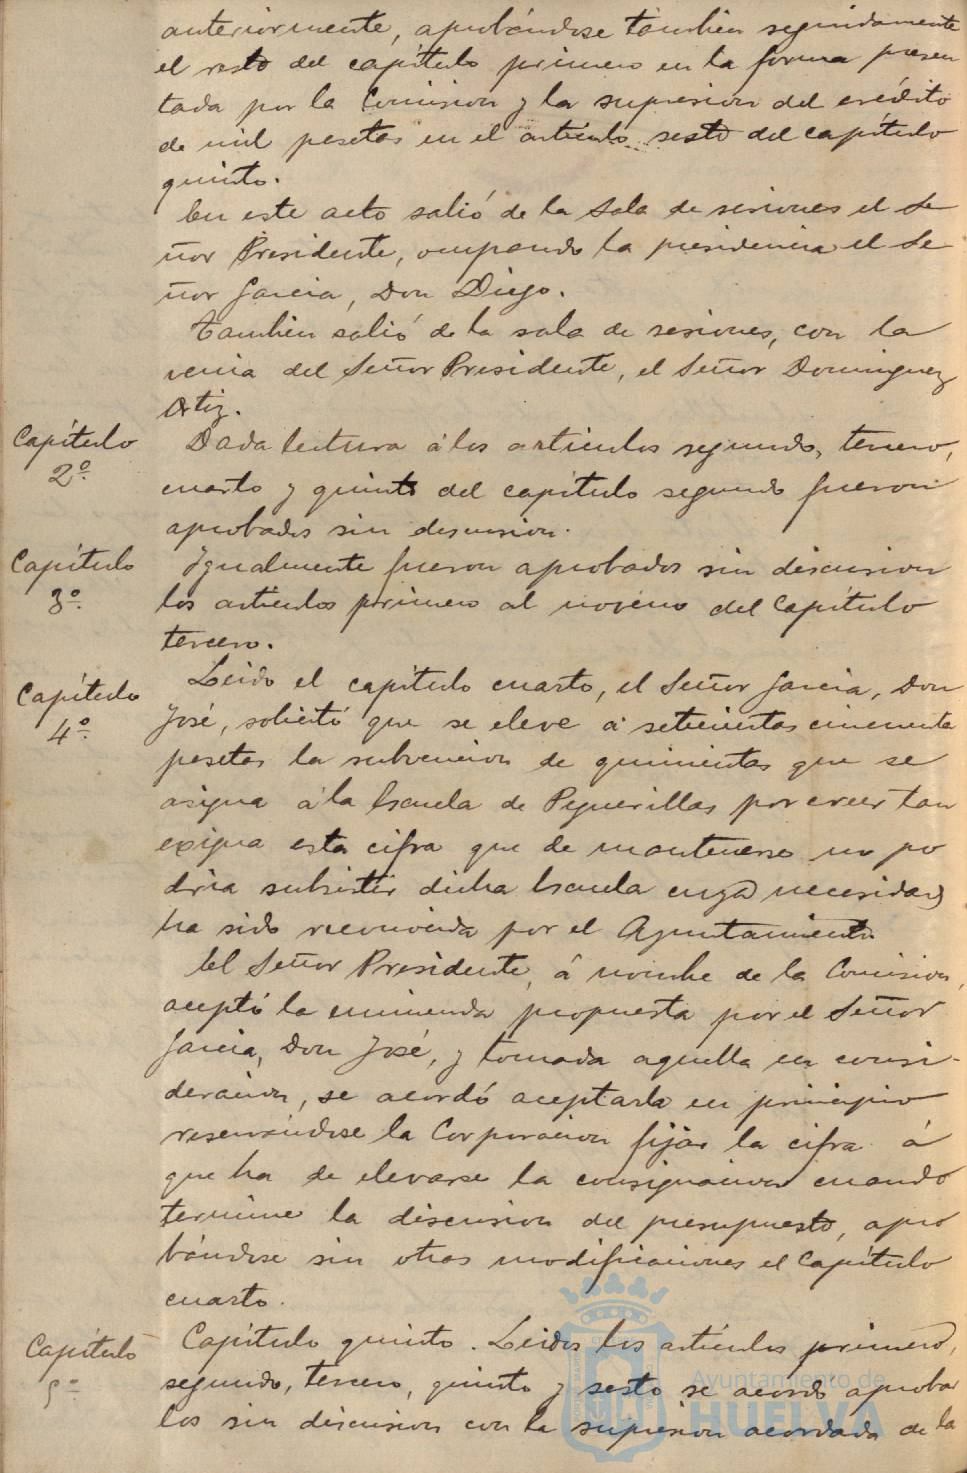 anteriormente, aprobándose tambien seguidamente
el resto del capítulo primero en la forma presen
tada por la Comision y la supresion del crédito
de mil pesetas en el artículo sesto del capítulo
quinto.
En este acto salió de la Sala de sesiones el Se
ñor Presidente, ocupando la presidencia el Se
ñor Garcia, Don Diego.
Tambien salió de la sala de sesiones, con la
venia del Señor Presidente, el Señor Dominguez
Ortiz.
Capítulo
2º
Dada lectura á los artículos segundo, tercero,
cuarto y quinto del capítulo segundo fueron
aprobados sin discusion.
Capítulo
3º
Igualmente fueron aprobados sin discusion
los artículos primero al noveno del Capítulo
tercero.
Capítulo
4º
Leido el capítulo cuarto, el Señor Garcia, Don
José, solicitó que se eleve á setecientas cincuenta
pesetas la subvencion de quinientas que se
asigna á la Escuela de Peguerillas por creer tan
exigua esta cifra que de mantenerse no po
dria subsistir dicha Escuela cuya necesidad
ha sido reconocida por el Ayuntamiento.
El Señor Presidente, á nombre de la Comision,
aceptó la enmienda propuesta por el Señor
Garcia, Don José, y tomada aquella en consi-
deracion, se acordó aceptarla en principio
reservándose la Corporacion fijar la cifra á
que ha de elevarse la consignacion cuando
termine la discusion del presupuesto, apro
bándose sin otras modificaciones el Capítulo
cuarto.
Capítulo
5º
Capítulo quinto. Leidos los artículos primero,
segundo, tercero, quinto y sesto se acordó aprobar
los sin discusion con la supresion acordada de la
Ayuntamiento de
HUELVA